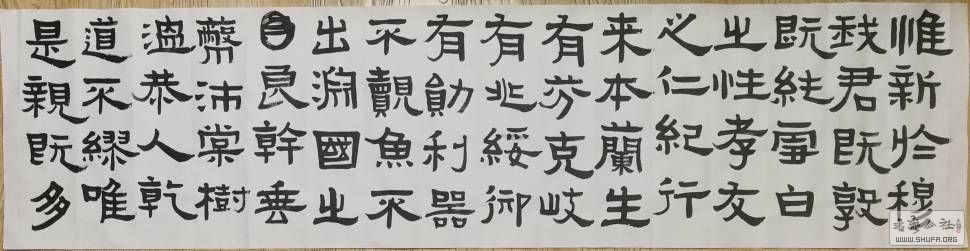 惟新於穆
我君既敦
既純雪白
之性孝友
之仁紀行
来本蘭生
有芬克岐
有兆綏御
有勛利器
不覿魚不
出淵國之
良幹垂
蔽沛棠樹
温恭人乾
道不繆唯
是親既多
WWW.SHUFA.ORG